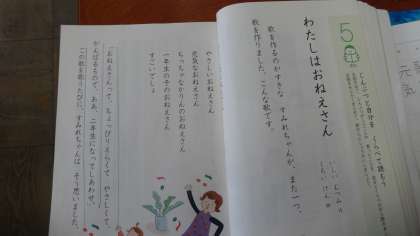 5
どんぶっと自分を
くらべて読もう
わたしはおねえさん
いしい むつみ 作
くろい けん 絵
歌を作るのがすきな すみれちゃんが、また一つ、
歌を作りました。こんな歌です。
やさしいおねえさん
元気なおねえさん
ちっちゃなかりんのおねえさん
一年生の子のおねえさん
すごいでしょ
「おねえさんって、ちょっぴりえらくて やさしくて、
がんばるもので、ああ、二年生になってしあわせ。」
この歌を歌うたびに、すみれちゃんは、そう思いました。
元気